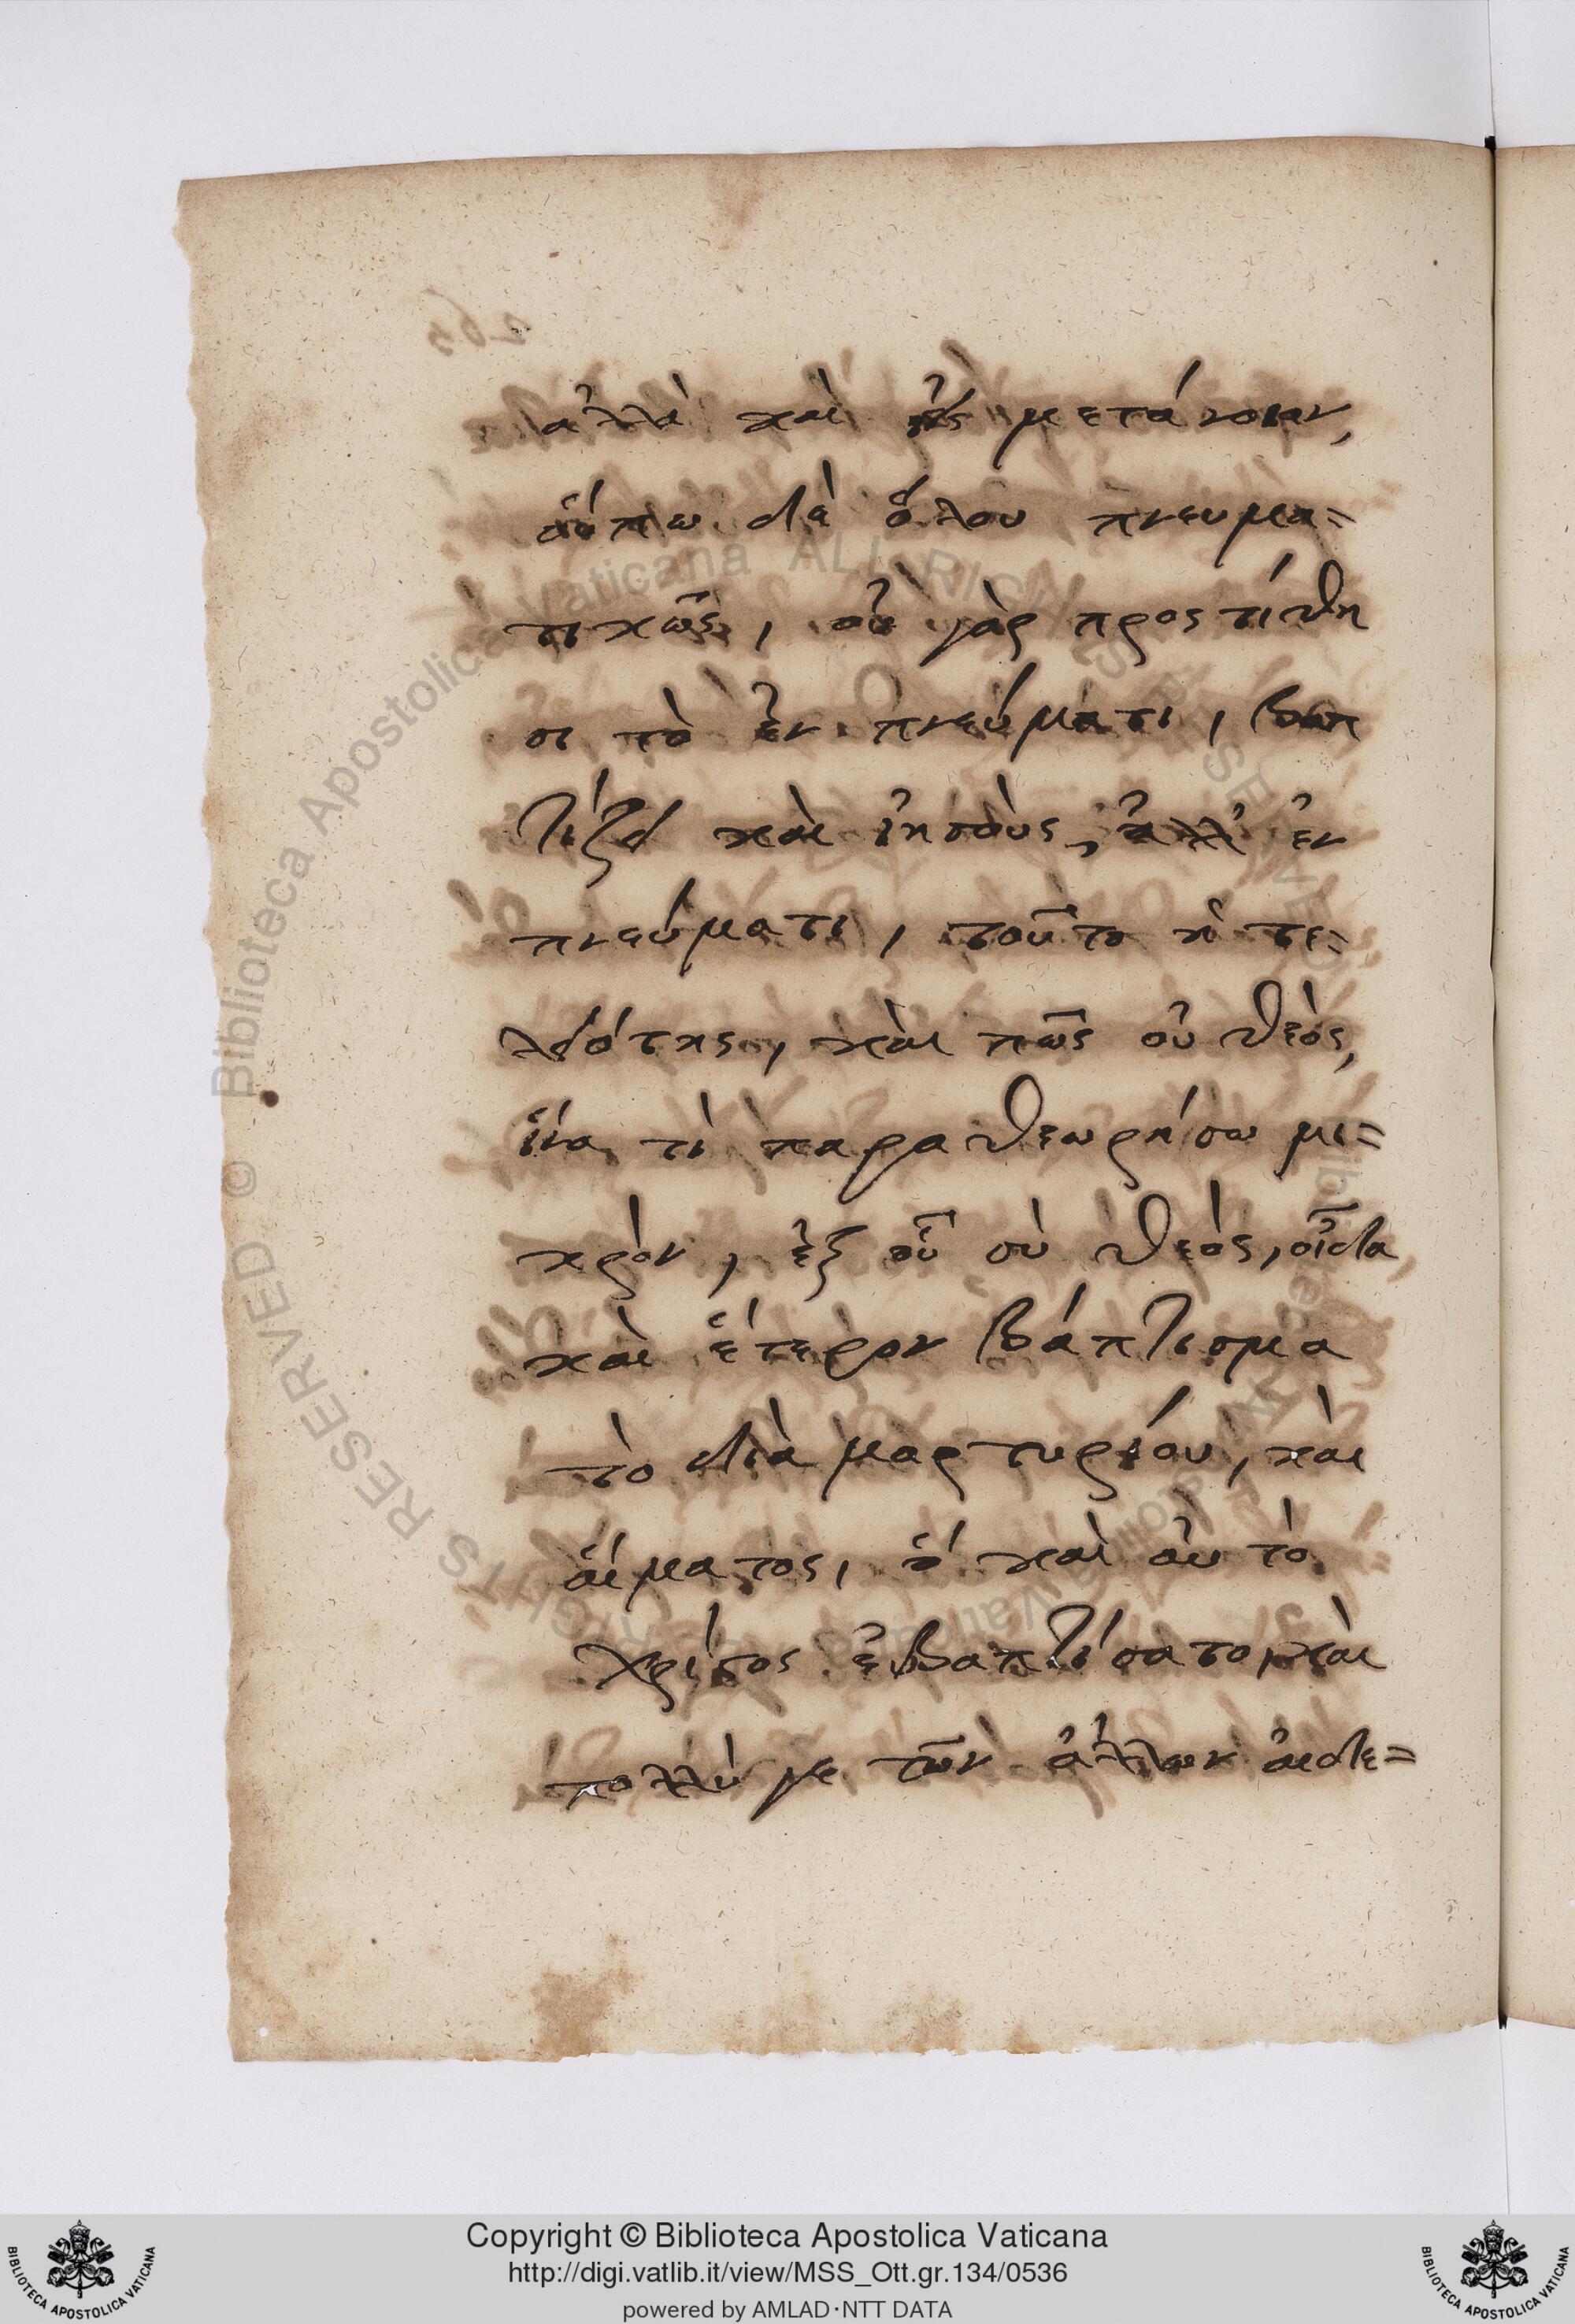 ἀλλὰ καὶ εἰς μετάνοιαν,
οὔπω δὲ ὅλου πνευμα=
τικῶς, οὐ γὰρ προστίθη
σι τὸ ἐν πνεύματι, βαπ
τίζει καὶ ἰησοὺς, ἀλλ' ἐν
πνεύματι, τοῦτο ἡ τε=
λειότης, καὶ πῶς οὐ θεὸς,
ἵνα τὶ παραθεωρήσω μι=
κρὸν, ἐξ οὗ σὺ θεὸς, οἶδα
καὶ ἕτερον βάπτισμα
τὸ διὰ μαρτυρίου, καὶ
αἵματος, ὅ καὶ αὐτὸ
χρίστος ἐβαπτίσατο, καὶ
πολλύ γε τῶν ἄλλων αἰδε=
Copyright © Biblioteca Apostolica Vaticana
http://digi.vatlib.it/view/MSS_Ott.gr.134/0536
powered by AMLAD·NTT DATA
BIBLIOTECA APOSTOLICA VATICANA
BIBLIOTECA APOSTOLICA VATICANA